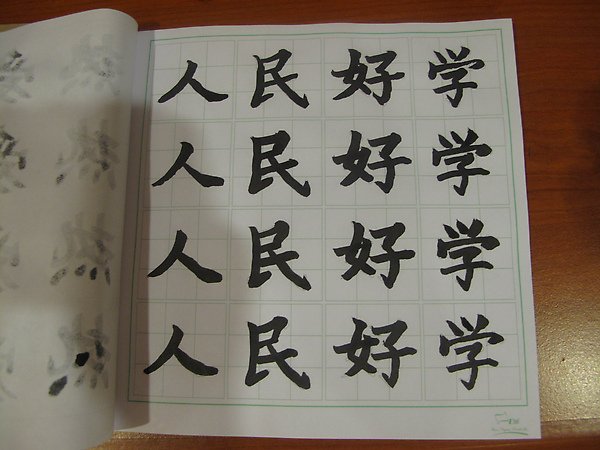 人民好学
人民好学
人民好学
人民好学